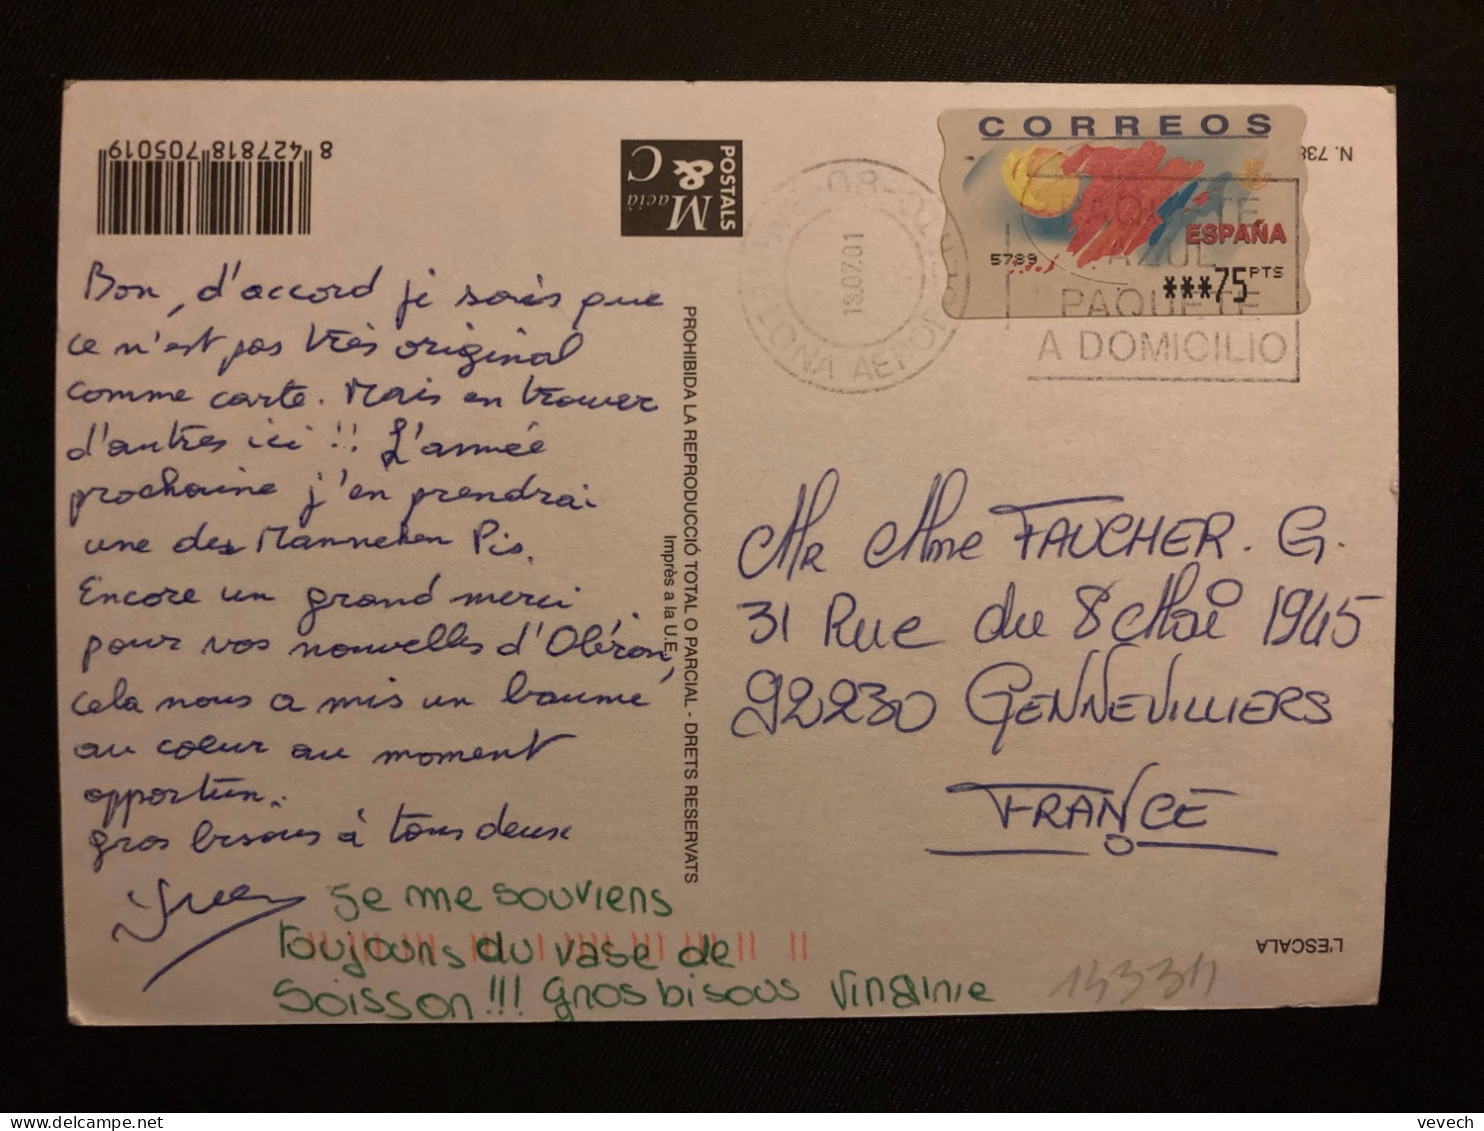 8 427818 705019
POSTALS
Macià
& C
N. 738
CORREOS
ESPAÑA
5789
***75 PTS
08-
13.07.01
AEROP
PAQUETE
AZUL
PAQUETE
A DOMICILIO
Bon, d'accord je sais que
ce n'est pas très original
comme carte. Mais en trouver
d'autres ici !! L'année
prochaine j'en prendrai
une des Manneken Pis.
Encore un grand merci
pour vos nouvelles d'Oléron,
cela nous a mis un baume
au coeur au moment
opportun.
gros bisous à tous deux
Je me souviens
toujours du vase de
Soisson!!! gros bisous Virginie
PROHIBIDA LA REPRODUCCIÓ TOTAL O PARCIAL - DRETS RESERVATS
Imprès a la U.E.
Mr Mme FAUCHER. G.
31 Rue du 8 Mai 1945
92230 GENNEVILLIERS
FRANCE
L'ESCALA
vevech